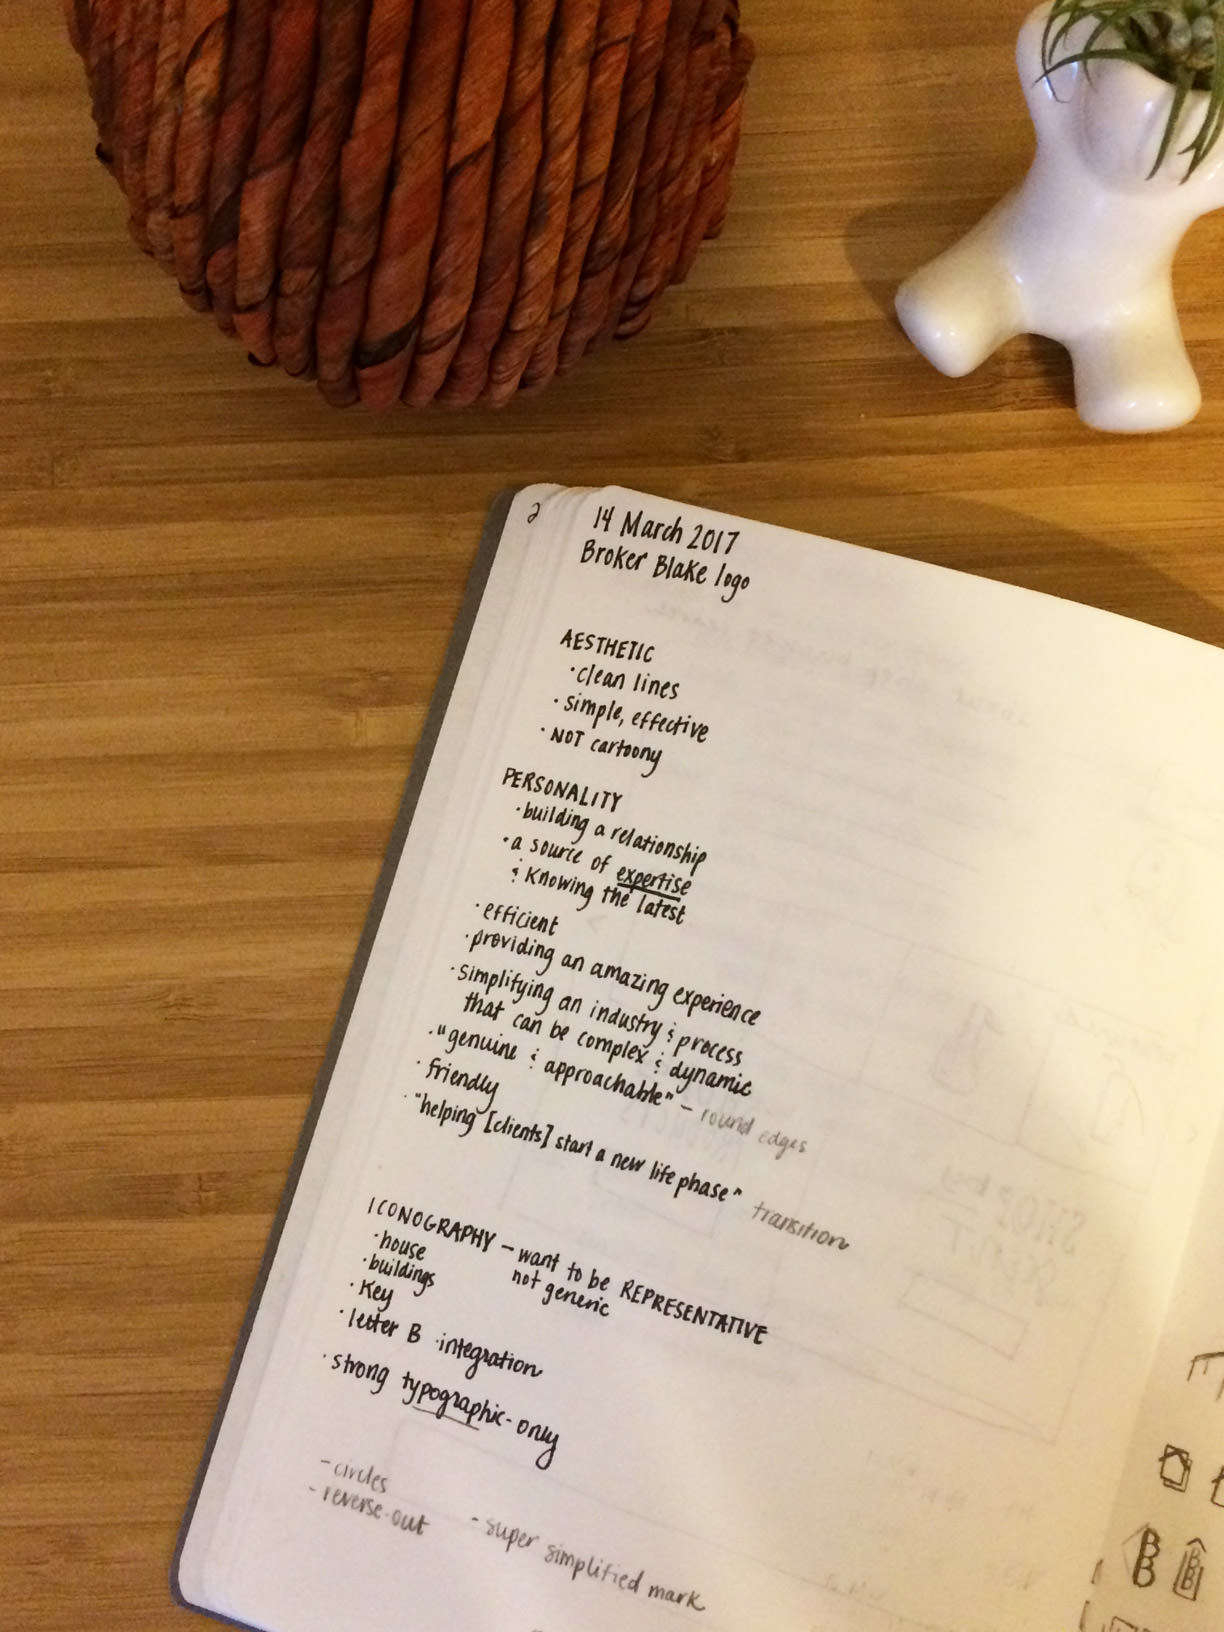 2
14 March 2017
Broker Blake logo
AESTHETIC
· clean lines
· simple, effective
· NOT cartoony
PERSONALITY
· building a relationship
· a source of expertise
& knowing the latest
· efficient
· providing an amazing experience
· simplifying an industry & process
that can be complex & dynamic
· "genuine & approachable" - round edges
· friendly
· "helping [clients] start a new life phase" transition
ICONOGRAPHY - want to be REPRESENTATIVE
not generic
· house
· buildings
· key
· letter B integration
· strong typographic-only
- circles
- reverse-out
- super simplified mark
B
B
B